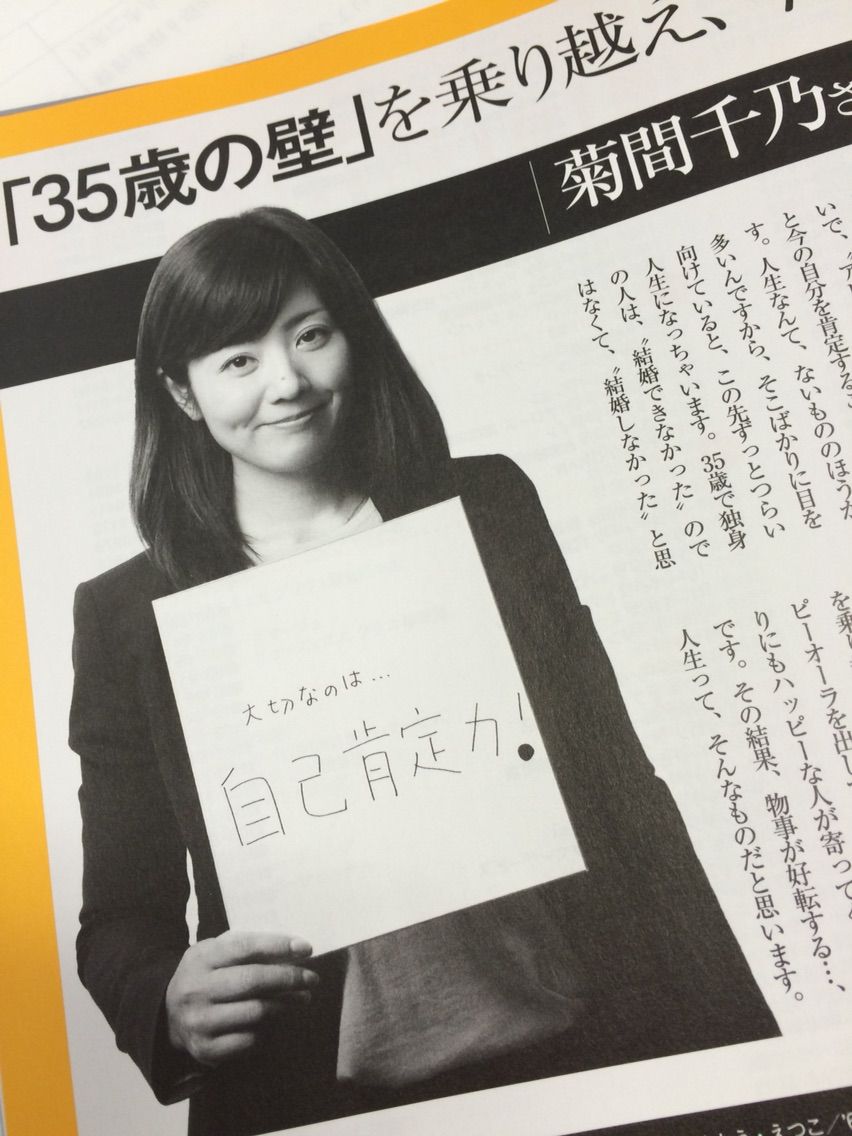 「35歳の壁」を乗り越え、
菊間千乃さ
いで、〝ア
と今の自分を肯定するこ
す。人生なんて、ないもののほうが
多いんですから、そこばかりに目を
向けていると、この先ずっとつらい
人生になっちゃいます。35歳で独身
の人は、〝結婚できなかった〟ので
はなくて、〝結婚しなかった〟と思
ピーオーラを出し
りにもハッピーな人が寄って
です。その結果、物事が好転する…、
人生って、そんなものだと思います。
大切なのは…
自己肯定力!
え・えつこ/'6